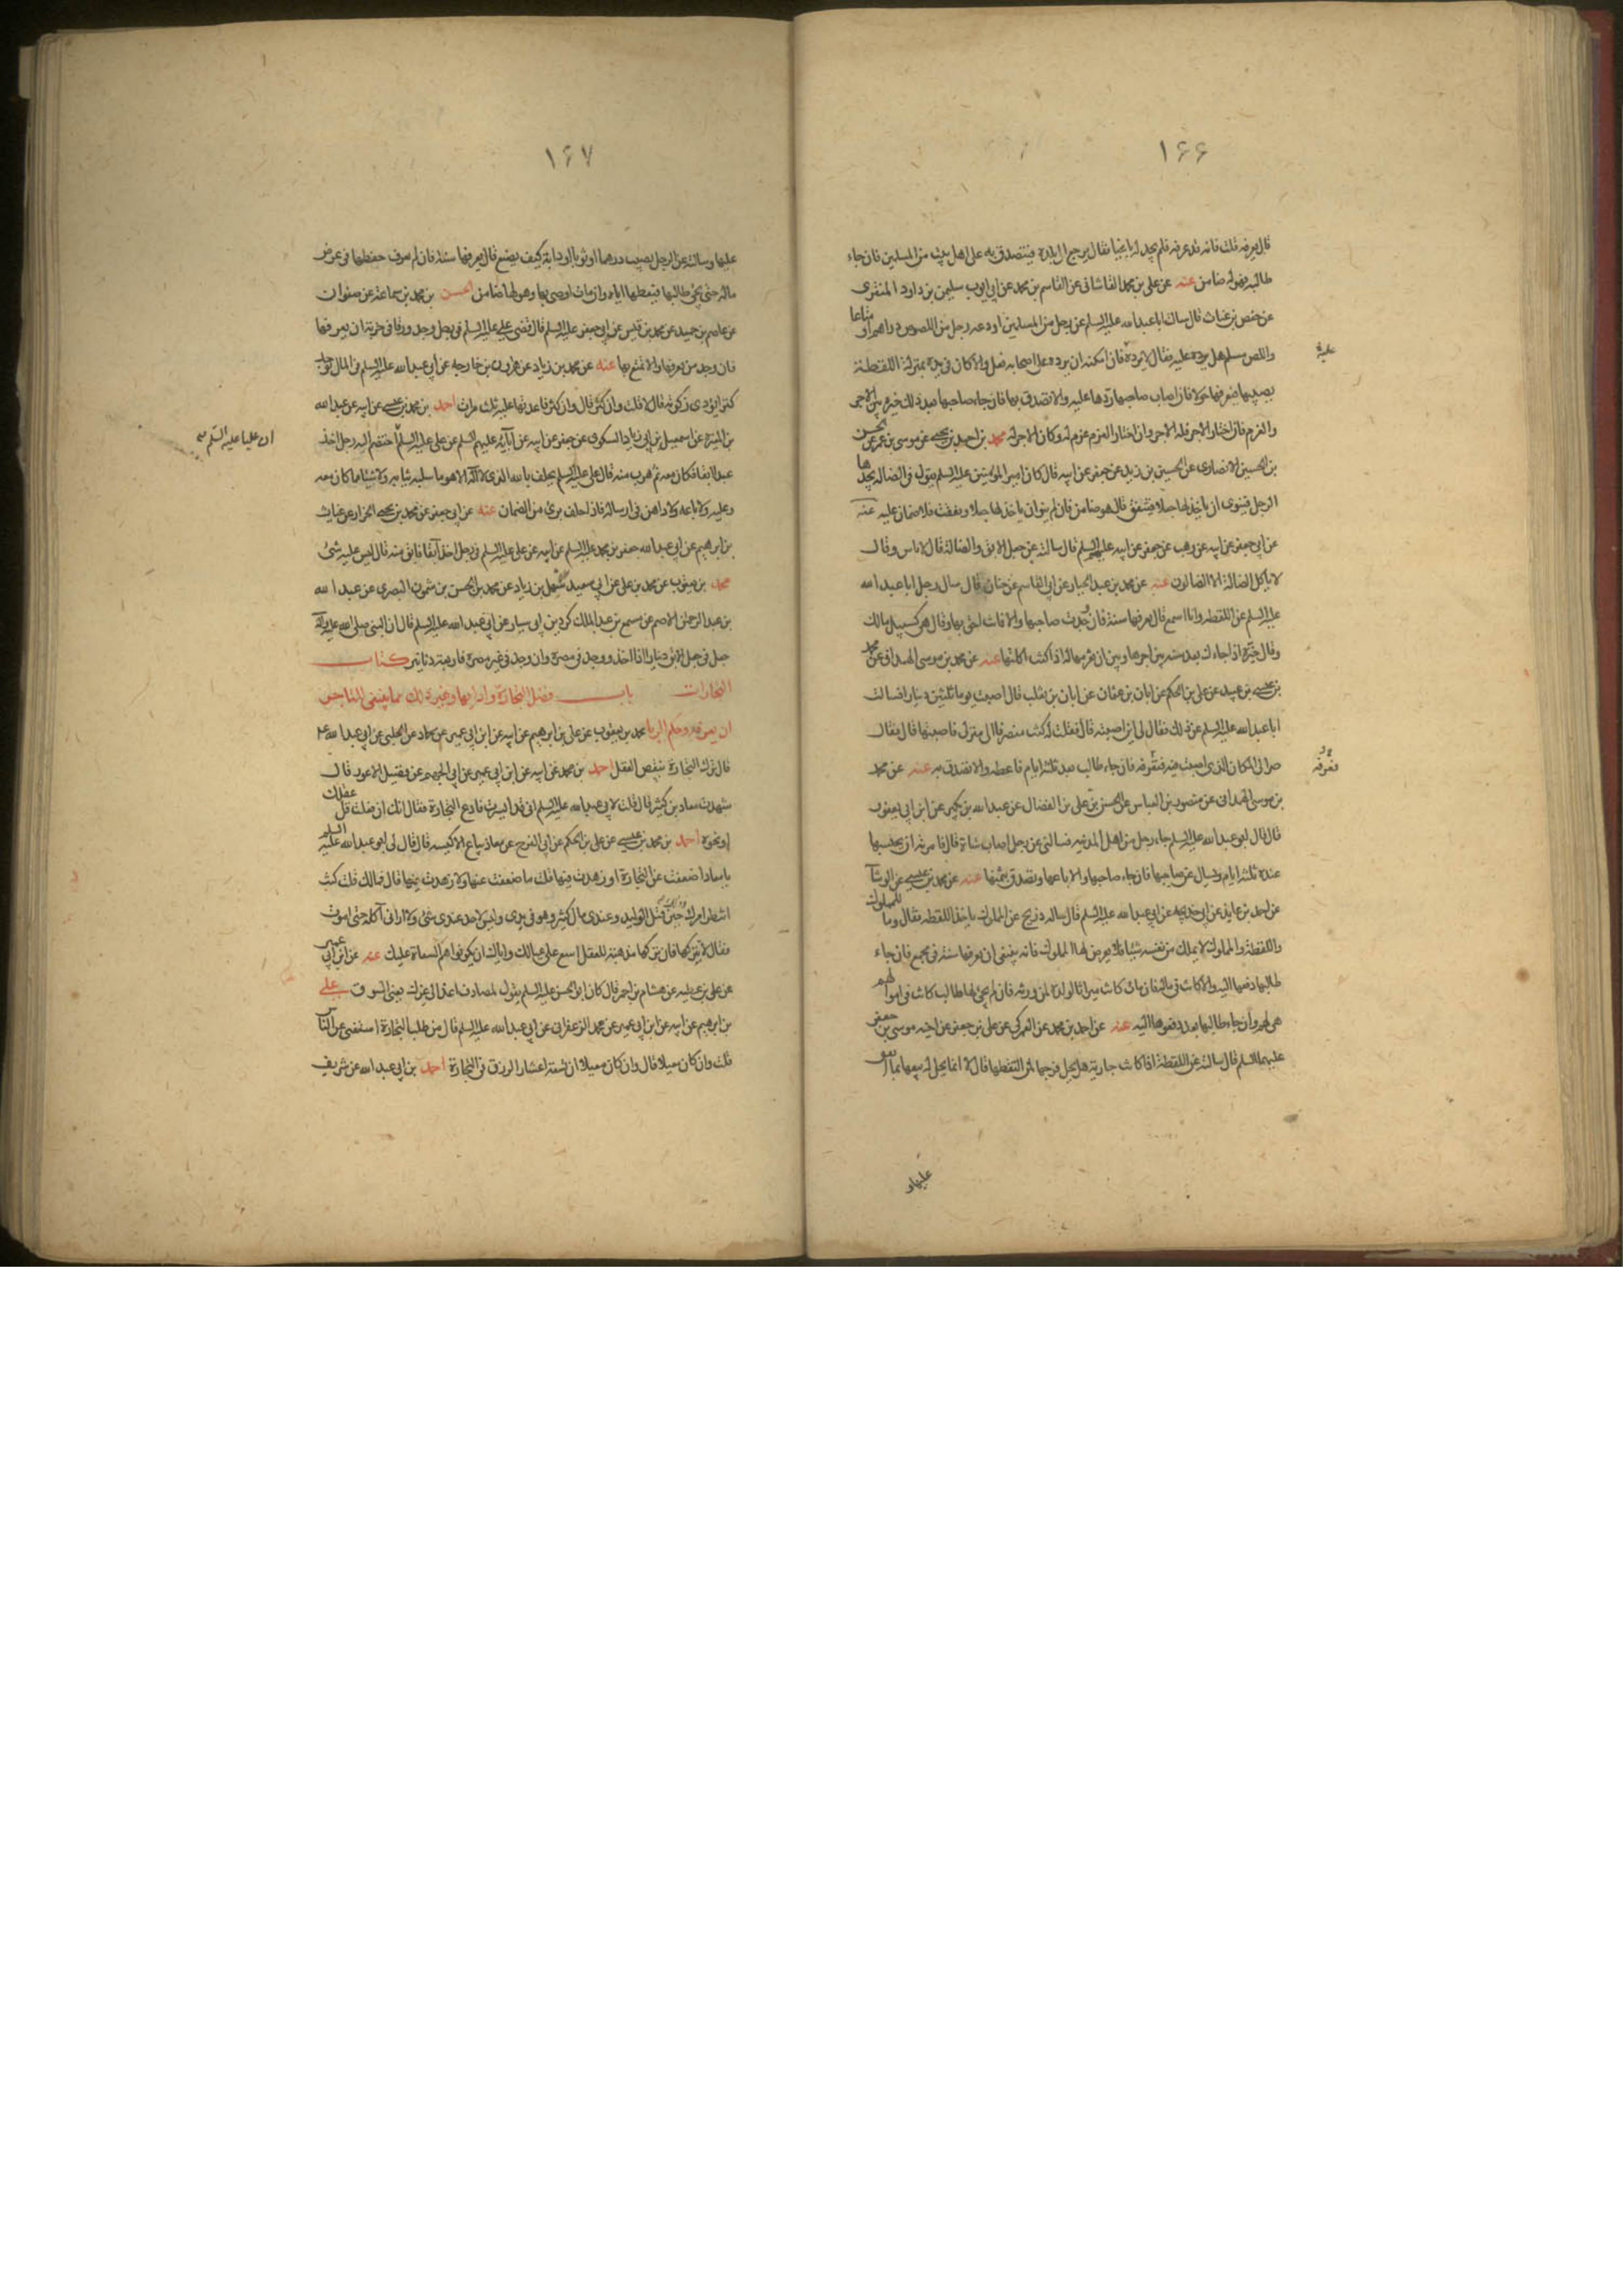 ١۶۶
قال يعرفه قلت فانه قد عرفه فلم يجد له باغيا فقال يرجع الى بلده فيتصدق به على اهل بيت من المسلمين فان جاء
طالبه فهو له ضامن عنه عن على بن محمد القاشانى عن القاسم بن محمد عن ابى ايوب سليمن بن داود المنقرى
عن حفص بن غياث قال سالت ابا عبد الله عليه السلم عن رجل من المسلمين اودعه رجل من اللصوص دراهم او متاعا
واللص مسلم هل يرده عليه فقال لا يرده فان امكنه ان يرده على اصحابه فعل والا كان فى يده بمنزلة اللقطة
عليه
يصيبها فيعرفها حولا فان اصاب صاحبها ردها عليه والا تصدق بها فان جاء صاحبها بعد ذلك خيره بين الاجر
والغرم فان اختار الاجر فله الاجر وان اختار الغرم غرم له وكان الاجر له محمد بن احمد بن يحيى عن موسى بن عمر عن الحسين
بن الحسين الانصارى عن الحسين بن زيد عن جعفر عن ابيه قال كان امير المؤمنين عليه السلم يقول فى الضالة يجدها
الرجل فينوى ان ياخذ لها جعلا فتنفق قال هو ضامن فان لم ينو ان ياخذ لها جعلا ونفقت فلا ضمان عليه عنه
عن ابى جعفر عن ابيه عن وهب عن جعفر عن ابيه عليهم السلم قال سالته عن جعل الابق والضالة قال لا باس وقال
لا ياكل الضالة الا الضالون عنه عن محمد بن عبد الجبار عن ابى القاسم عن حنان قال سال رجل ابا عبد الله
عليه السلم عن اللقطة وانا اسمع قال تعرفها سنة فان وجدت صاحبها والا فانت احق بها وقال هى كسبيل مالك
وقال خيره اذا جاءك بعد سنة بين اجرها وبين ان تغرمها له اذا كنت اكلتها عنه عن محمد بن موسى الهمدانى عن محمد
بن عيسى بن عبيد عن على بن الحكم عن ابان بن عثمان عن ابان بن تغلب قال اصبت يوما ثلثين دينارا فسالت
ابا عبد الله عليه السلم عن ذلك فقال لى اين اصبته قال فقلت له كنت منصرفا الى منزلى فاصبتها قال فقال
صر الى المكان الذى اصبت فيه فتعرفه فان جاء طالب بعد ثلثة ايام فاعطه والا تصدق به عنه عن محمد
فعرفه
بن موسى الهمدانى عن منصور بن العباس عن الحسن بن على بن الفضال عن عبد الله بن بكير عن ابن ابى يعفور
قال قال ابو عبد الله عليه السلم جاء رجل من اهل المدينه فسالنى عن رجل اصاب شاة قال فامرته ان يحبسها
عنده ثلثة ايام ويسال عن صاحبها فان جاء صاحبها والا باعها وتصدق بثمنها عنه عن محمد بن عيسى عن الوشا
عن احمد بن عايذ عن ابى خديجه عن ابى عبد الله عليه السلم قال ساله ذريح عن المملوك ياخذ اللقطة فقال وما للمملوك
واللقطة والمملوك لا يملك من نفسه شيئا فلا يعرض لها المملوك فانه ينبغى ان يعرفها سنة فى مجمع فان جاء
طالبها دفعها اليه والا كانت فى ماله فان مات كانت ميراثا لولده لمن ورثه فان لم يجئ لها طالب كانت فى اموالهم
هى لهم وان جاء طالبها بعد دفعوها اليه عنه عن احمد بن محمد عن العمركى عن على بن جعفر عن اخيه موسى بن جعفر
عليهما السلم قال سالته عن اللقطة اذا كانت جارية هل يحل فرجها لمن التقطها قال لا انما يحل له بيعها بما انفق
عليها و
١۶٧
عليها وسالته عن الرجل يصيب درهما او ثوبا او دابة كيف يصنع قال يعرفها سنة فان لم يعرف حفظها فى عرض
ماله حتى يجئ طالبها فيعطيها اياه وان مات اوصى بها وهو لها ضامن الحسن بن محمد بن سماعة عن صفوان
عن عاصم بن حميد عن محمد بن قيس عن ابى جعفر عليه السلم قال قضى على عليه السلم فى رجل وجد ورقا فى خربة ان يعرفها
فان وجد من يعرفها والا تمتع بها عنه عن محمد بن زياد عن هرون بن خارجه عن ابى عبد الله عليه السلم فى المال يوجد
كنزا يؤدى زكوته قال لا قلت وان كثر قال وان كثر فاعدتها عليه ثلث مرات احمد بن محمد بن عيسى عن ابيه عن عبد الله
بن المغيرة عن اسمعيل بن ابى زياد السكونى عن جعفر عن ابيه عن آبائه عليهم السلم عن على عليه السلم اختصم اليه رجل اخذ
ان عليا عليه السلم
عبدا ابقا فكان معه ثم هرب منه قال على عليه السلم يحلف بالله الذى لا اله الا هو ما سلبه ثيابه ولا شيئا مما كان معه
وعليه ولا باعه ولا داهن فى ارساله فان حلف برئ من الضمان عنه عن ابى جعفر عن محمد بن يحيى الخزاز عن غياث
بن ابرهيم عن ابى عبد الله جعفر بن محمد عليه السلم عن ابيه عن على عليه السلم فى رجل اخذ آبقا فابق منه قال ليس عليه شئ
محمد بن يعقوب عن محمد بن على عن ابى سعيد سهل بن زياد عن محمد بن الحسن بن شمون البصرى عن عبد الله
بن عبد الرحمن الاصم عن مسمع بن عبد الملك كردين ابى سيار عن ابى عبد الله عليه السلم قال ان النبى صلى الله عليه وآله
جعل فى جعل الابق دينارا اذا اخذ ووجد فى مصره وان وجد فى غير مصره فاربعة دنانير كتاب
التجارات باب فضل التجارة وادابها وغير ذلك مما ينبغى للتاجر
ان يعرفه وحكم الربا محمد بن يعقوب عن على بن ابرهيم عن ابيه عن ابن ابى عمير عن حماد عن الحلبى عن ابى عبد الله ع
قال ترك التجارة ينقص العقل احمد بن محمد عن ابيه عن ابن ابى عمير عن ابى الجهم عن فضيل الاعور قال
شهدت معاذ بن كثير قال قلت لابى عبد الله عليه السلم انى قد ايسرت فادع التجارة فقال انك ان فعلت قل عقلك
او نحوه احمد بن محمد بن عيسى عن على بن الحكم عن ابى الفرج عن معاذ بياع الاكيسه قال قال لى ابو عبد الله عليه السلم
يا معاذ اضعفت عن التجارة او زهدت فيها قلت ما ضعفت عنها ولا زهدت فيها قال فمالك قلت كنت
انتظر امرك حين قتل الوليد وعندى مال كثير وهو فى يدى وليس لاحد عندى شئ ولا ارانى آكله حتى اموت
فقال لا تتركها فان تركها مذهبة للعقل اسع على عيالك واياك ان يكونوا هم السعاة عليك عنه عن ابن ابى عمير
عن على بن عطيه عن هشام بن احمر قال كان ابو الحسن عليه السلم يقول لمصادف اغد الى عزك يعنى السوق على
بن ابرهيم عن ابيه عن ابن ابى عمير عن محمد الزعفرانى عن ابى عبد الله عليه السلم قال من طلب التجارة استغنى عن الناس
قلت وان كان معيلا قال وان كان معيلا ان تسعة اعشار الرزق فى التجارة احمد بن ابى عبد الله عن شريف